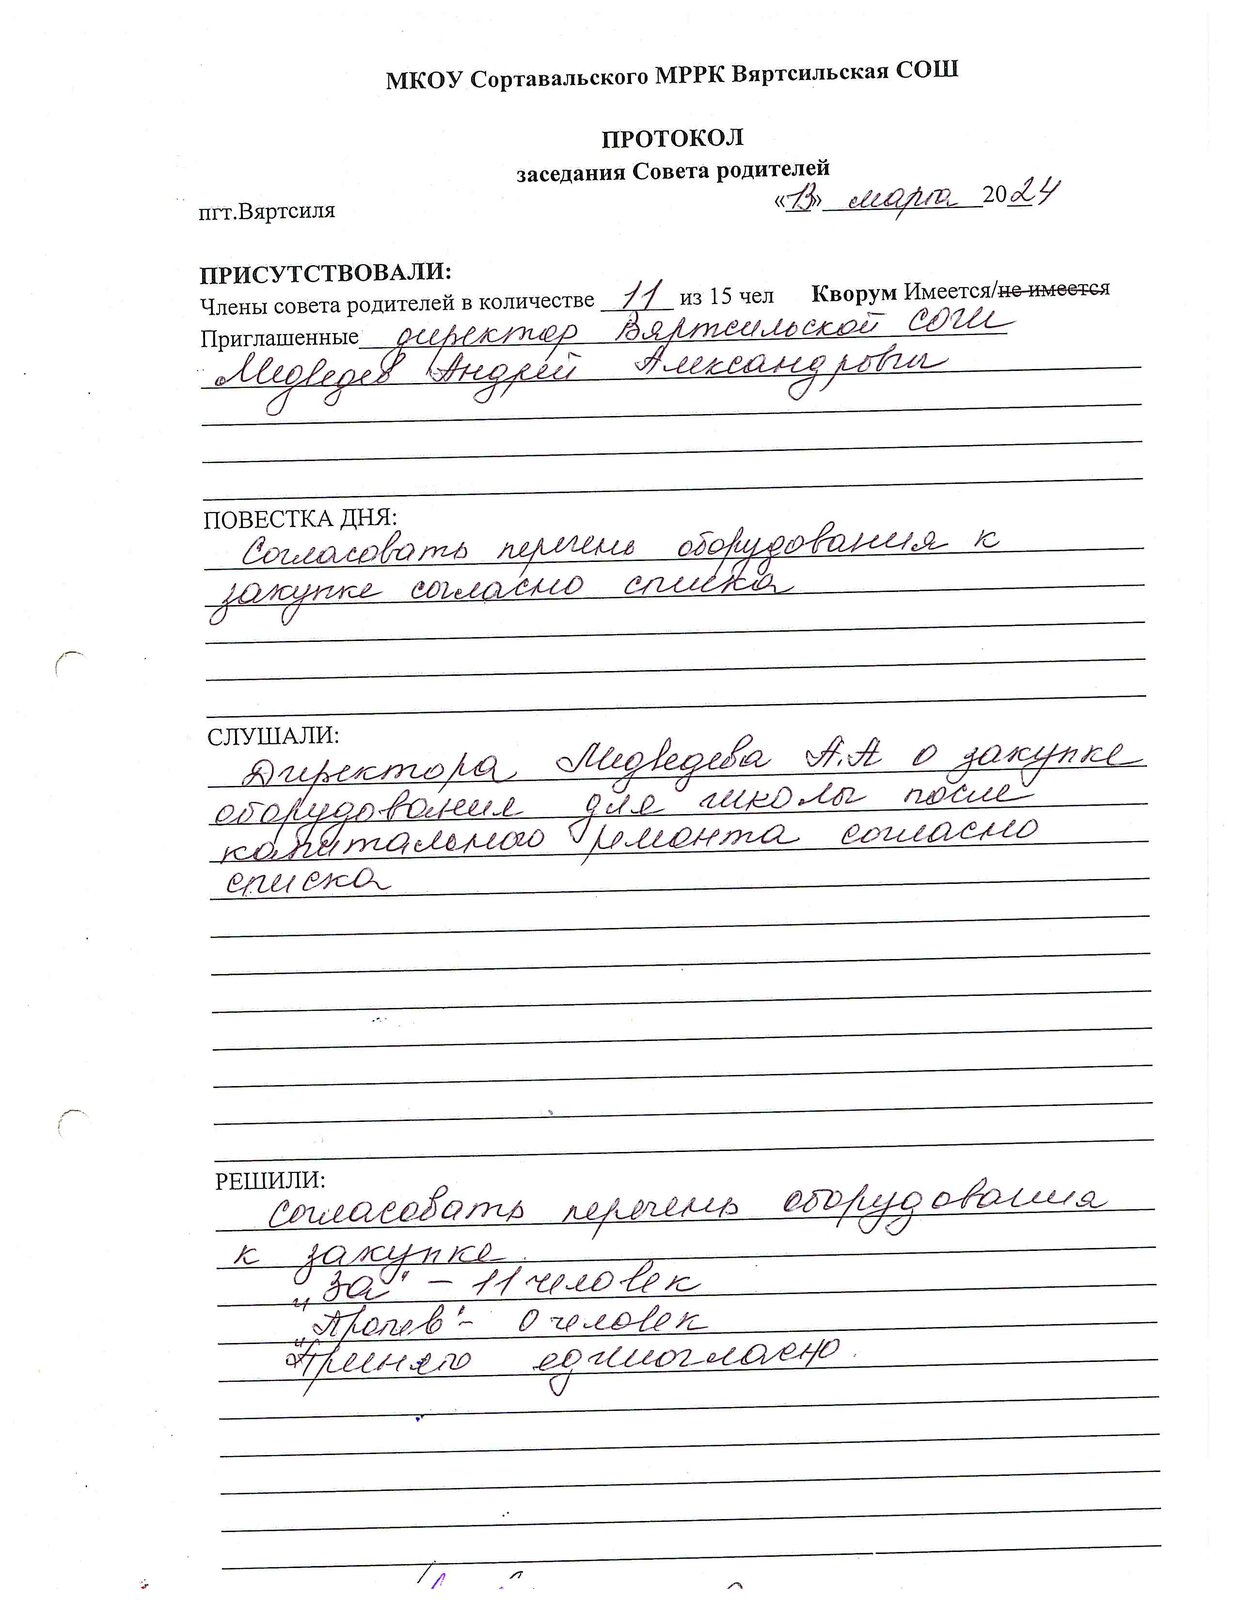 МКОУ Сортавальского МРРК Вяртсильская СОШ
ПРОТОКОЛ
заседания Совета родителей
пгт.Вяртсиля «13» марта 2024
ПРИСУТСТВОВАЛИ:
Члены совета родителей в количестве 11 из 15 чел Кворум Имеется/не имеется
Приглашенные директор Вяртсильской СОШ
Медведев Андрей Александрович
ПОВЕСТКА ДНЯ:
Согласовать перечень оборудования к
закупке согласно списка
СЛУШАЛИ:
Директора Медведева А.А о закупке
оборудования для школы после
капитального ремонта согласно
списка
РЕШИЛИ:
Согласовать перечень оборудования
к закупке.
„За" – 11 человек
„Против" – 0 человек
Принято единогласно.